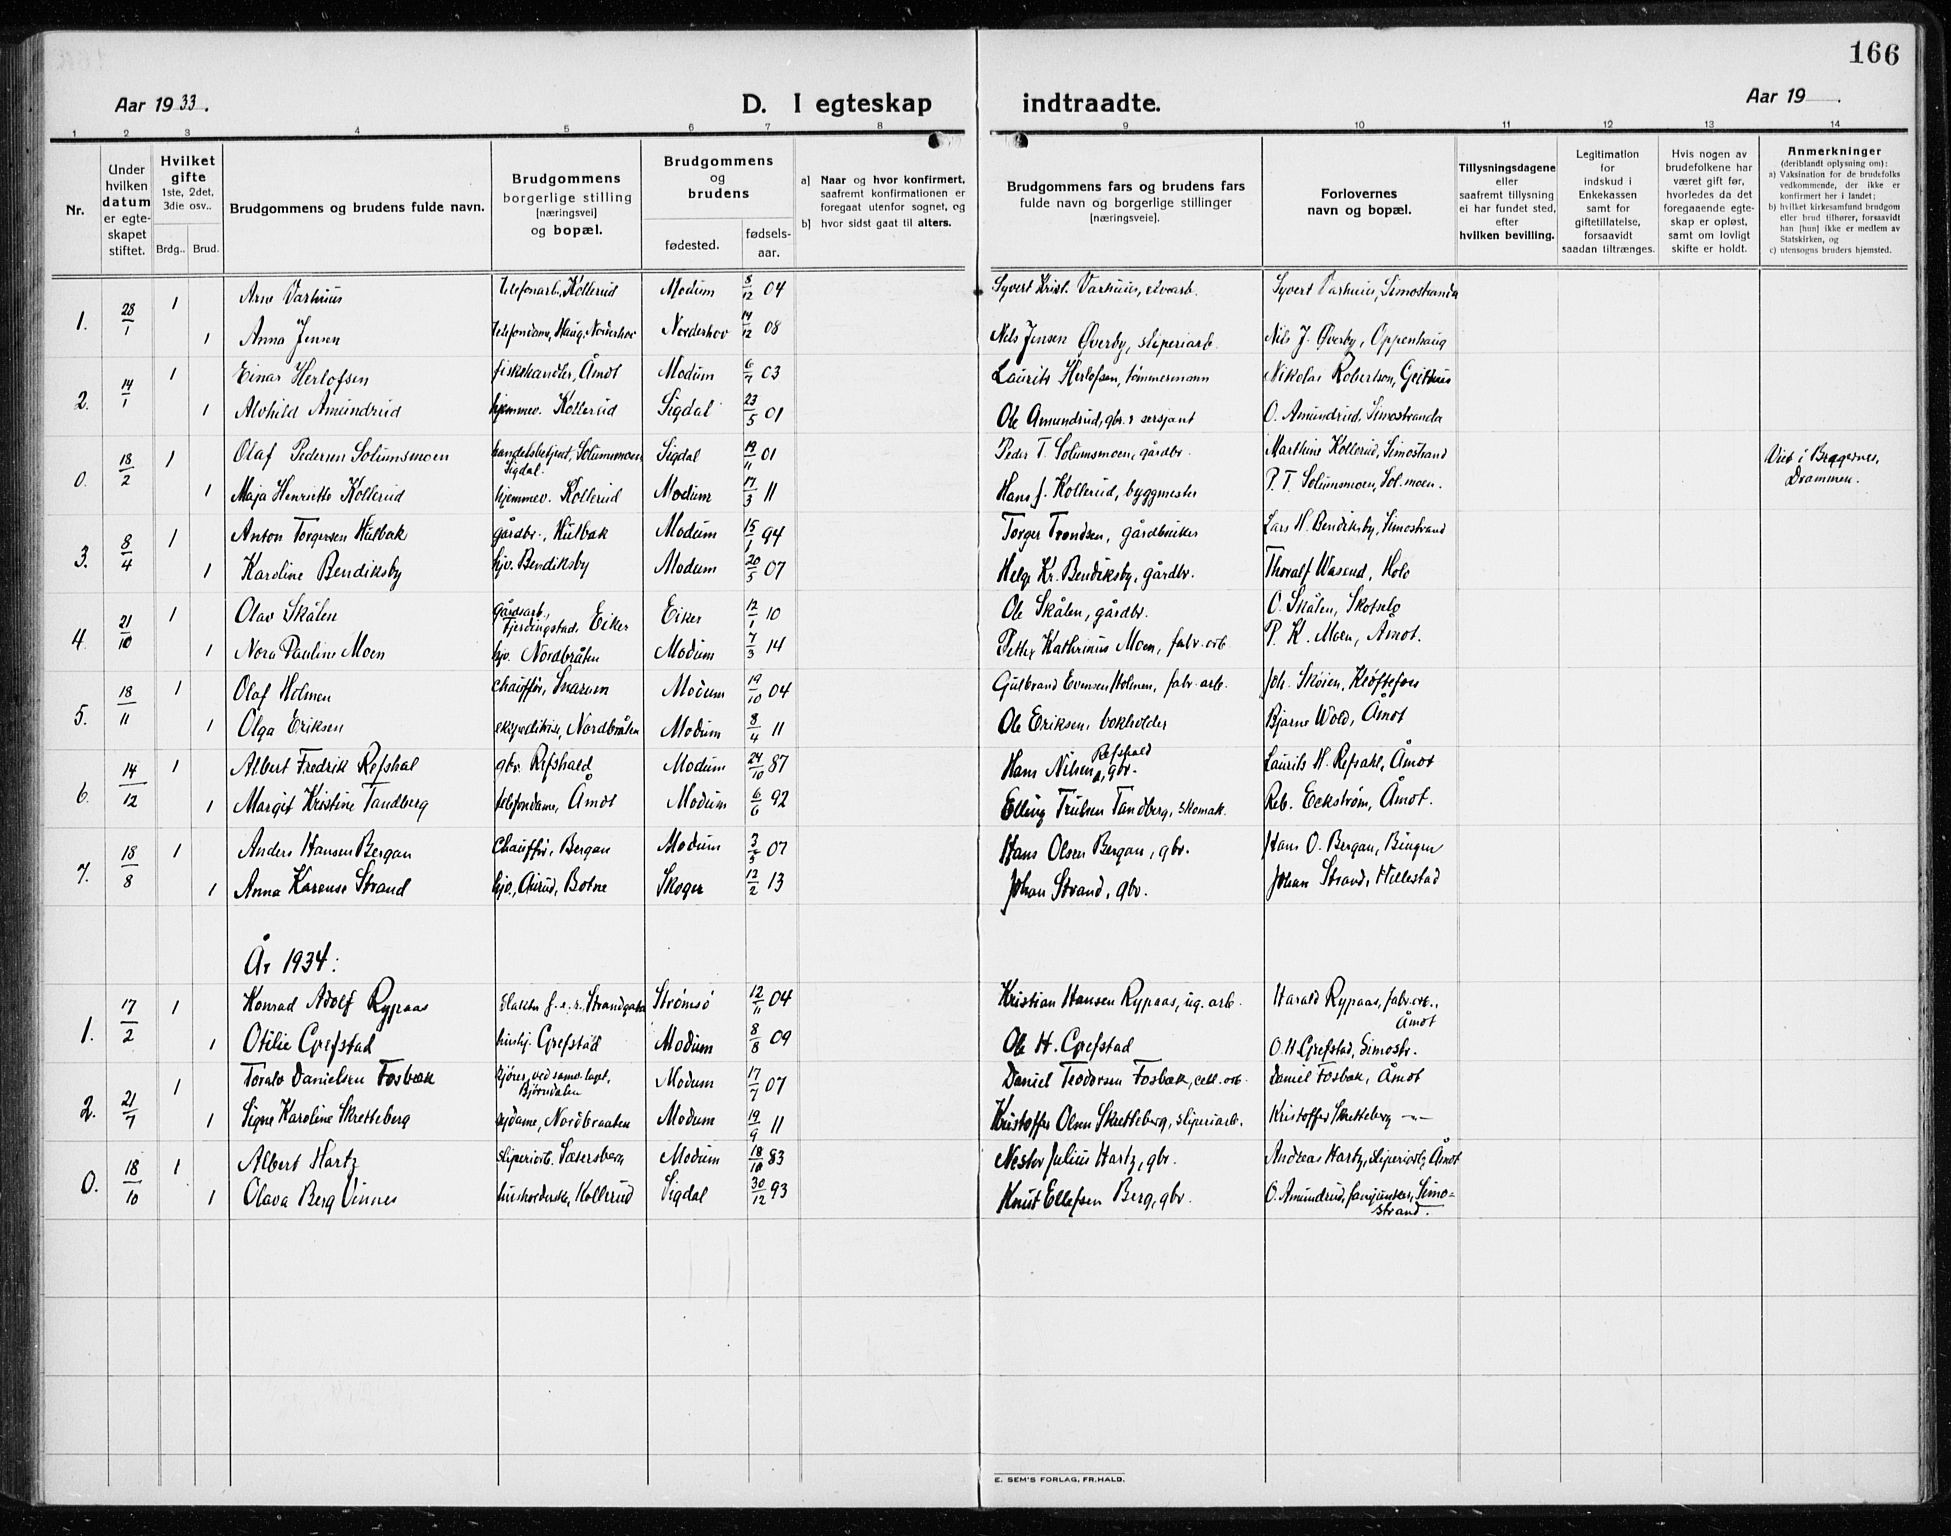 166
Aar 1933.
D. I egteskap indtraadte.
Aar 19 .
1 2 3 4 5 6 7 8 9 10 11 12 13 14
Nr.
Under hvilken datum er egte-skapet stiftet.
Hvilket gifte
1ste, 2det, 3die osv..
Brdg.. Brud.
Brudgommens og brudens fulde navn.
Brudgommens borgerlige stilling [næringsvei] og bopæl.
Brudgommens og brudens
fødested. fødsels-aar.
a) Naar og hvor konfirmert, saafremt konfirmationen er foregaat utenfor sognet, og
b) hvor sidst gaat til alters.
Brudgommens fars og brudens fars fulde navn og borgerlige stillinger [næringsveie].
Forlovernes navn og bopæl.
Tillysningsdagene eller saafremt tillysning ei har fundet sted, efter hvilken bevilling.
Legitimation for indskud i Enkekassen samt for giftetillatelse, forsaavidt saadan tiltrænges.
Hvis nogen av brudefolkene har været gift før, hvorledes da det foregaaende egte-skap er opløst, samt om lovligt skifte er holdt.
Anmerkninger
(deriblandt oplysning om):
a) Vaksination for de brudefolks vedkommende, der ikke er konfirmert her i landet;
b) hvilket kirkesamfund brudgom eller brud tilhører, forsaavidt han [hun] ikke er medlem av Statskirken, og
c) utensogns bruders hjemsted.
1. 28/1 1 Arne Varhuus Telefonarb., Kollerud Modum 8/12 04 Syvert Krist. Varhuus, elvearb. Syvert Varhuus, Simostranda
1 Anna Jensen telefondame, Haug, Norderhov Norderhov 14/12 08 Nils Jensen Øverby, sliperiarb. Nils J. Øverby, Oppenhaug
2. 14/1 1 Einar Herlofsen fiskehandler, Åmot Modum 6/7 03 Laurits Herlofsen, tømmermann Nikolai Robertson, Geithus
1 Alvhild Amundrud hjemmev. Kollerud Sigdal 23/5 01 Ole Amundrud, gbr. & sersjant O. Amundrud, Simostranda
0. 18/2 1 Olaf Pedersen Solumsmoen handelsbetjent, Solumsmoen Sigdal. Sigdal 19/11 01 Peder T. Solumsmoen, gårdbr. Marthine Kollerud, Simostrand Viet i Bragernes, Drammen.
1 Maja Henriette Kollerud hjemmev. Kollerud Modum 17/3 11 Hans J. Kollerud, byggmester P. T. Solumsmoen, Sol.moen.
3. 8/4 1 Anton Torgersen Hulbak gårdbr., Hulbak Modum 15/1 94 Torger Trondsen, gårdbruker Lars H. Bendiksby, Simostrand
1 Karoline Bendiksby hjv. Bendiksby Modum 20/5 07 Helge Kr. Bendiksby, gårdbr. Thoralf Wasend, Hole
4. 21/10 1 Olav Skålen Gårdsarb., Fjerdingstad, Eiker Eiker 12/1 10 Ole Skålen, gårdbr. O. Skålen, Skotselv
1 Nora Pauline Moen hjv. Nordbråten Modum 7/3 14 Petter Kathrinus Moen, fabr. arb. P. K. Moen, Åmot.
5. 18/11 1 Olaf Holmen Chauffør, Snarum Modum 19/10 04 Gulbrand Evensen Holmen, fabr. arb. Joh. Skøien, Kløftefoss
1 Olga Eriksen ekspeditrise, Nordbråten Modum 8/4 11 Ole Eriksen, bokholder Bjarne Wold, Åmot
6. 14/12 1 Albert Fredrik Refshal gbr. Refshald Modum 24/10 87 Hans Nilsen Refshald, gbr. Laurits H. Refsahl, Åmot
1 Margit Kristine Tandberg telefondame, Åmot Modum 6/6 92 Elling Trulsen Tandberg, skomak. Reb. Eckstrøm, Åmot.
7. 18/8 1 Anders Hansen Bergan Chauffør, Bergan Modum 3/5 07 Hans Olsen Bergan, gbr. Hans O. Bergan, Bingen
1 Anna Karense Strand hjv., Aurud, Botne Skoger 12/2 13 Johan Strand, gbr. Johan Strand, Hillestad
År 1934:
1. 17/2 1 Konrad Adolf Rypaas Strømsø 12/11 04 Kristian Hansen Rypaas, ug. arb. Harald Rypaas, fabr. arb., Åmot
1 Otilie Grefstad hushj. Grefstad Modum 8/8 09 Ole H. Grefstad O. H. Grefstad, Simostr.
2. 21/7 1 Toralv Danielsen Fosbæk kjører, ved samv.laget, Bjørndalen Modum 17/7 07 Daniel Teodorsen Fosbæk, cell. arb. Daniel Fosbæk, Åmot
1 Signe Karoline Skretteberg dame, Nordbraaten Modum 19/9 11 Kristoffer Olsen Skretteberg, sliperiarb. Kristoffer Skretteberg —"—
0. 18/10 1 Albert Hartz sliperiarb. Sætersberg Modum 18/10 83 Nestor Julius Hartz, gbr. Andreas Hartz, sliperiarb., Åmot
1 Olava Berg Vinnes husholderske, Kollerud Sigdal 30/12 93 Knut Ellefsen Berg, gbr. O. Amundrud, fanejunker, Simo-strand.
E. SEM'S FORLAG, FR.HALD.